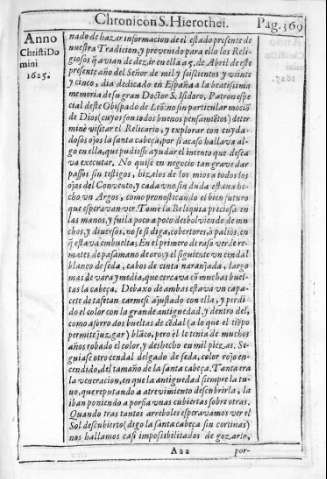 Chronicon S. Hierothei. Pag. 369
Anno
Christi Do
mini
1625.
nado de hazar informacion de el estado presente de
nuestra Tradicion, y prevenido para ello los Reli-
giosos q̃ avian de dezir en ella a 5. de Abril de este
presente año del Señor de mil y seiscientos y veinte
y cinco, dia dedicado en España a la beatissima
memoria de su gran Doctor S. Isidoro, Patron espe
cial deste Obispado de Leõ: no sin particular mociõ
de Dios (cuyos son todos buenos pensamiẽtos) deter
minè visitar el Relicario, y explorar con cuyda-
dosos ojos la santa cabeça, por si acaso hallava al-
go en ella, que pudiesse ayudar el intento que desea
va executar. No quise en negocio tan grave dar
passos sin testigos, hizelos de los mios a todos los
ojos del Convento, y cada vno sin duda estava he-
cho vn Argos, como pronosticando el bien futuro
que esperavan ver. Tomè la Reliquia preciosa en
las manos, y fuila poco a poco desbolviendo de mu
chos, y diversos, no se si diga, cobertores, ò palios, en
q̃ estava embuelta; En el primero de raso verde re-
matado, de passamano de oro; y el siguiente vn cendal
blanco de seda, cabos de cinta naranjada, largo
mas de vara y media, que cercava cõ muchas buel-
tas la cabeça. Debaxo de ambas estava vn capa-
cete de tafetan carmesi ajustado con ella, y perdi
do el color con la grande antiguedad, y dentro del,
como aforro dos bueltas de cẽdal (a lo que el tiẽpo
permite juzgar) blãco, però èl le tenia de muchos
años robado el color, y deshecho en mil pieças. Se-
guiase otro cendal delgado de seda, color rojo en-
cendido, del tamaño de la santa cabeça. Tanta era
la veneracion, en que la antiguedad siempre la tu-
vo, que reputando a atrevimiento descubrirla, la
iban poniendo a porfia vnas cubiertas sobre otras.
Quando tras tantos arreboles esperavamos ver el
Sol descubierto (digo la santa cabeça sin cortinas)
nos hallamos casi impossibilitados de gozarle,
Aaa por-